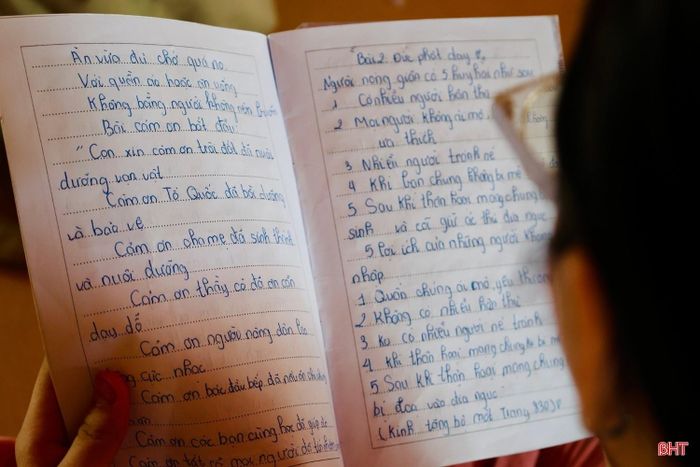 Ăn vừa đủ chớ quá no
Với quần áo hoặc ăn uống
Không bằng người không nên
Bài cám ơn bắt đầu:
"Con xin cám ơn trái đất đã nuôi
dưỡng vạn vật
Cám ơn Tổ Quốc đã bồi dưỡng
và bảo vệ
Cám ơn cha mẹ đã sinh thành
và nuôi dưỡng
Cám ơn thầy cô đã ân cần
dạy dỗ
Cám ơn người nông dân
cực nhọc
Cám ơn bác đầu bếp đã nấu ăn
Cám ơn các bạn cùng học đã giúp
Cám ơn tất cả mọi người đã
Bài 2. Đức phật dạy
Người nóng giận có 5 huỷ hoại như sau
1 Có nhiều người hờn thù
2 Mọi người không ái mộ,
ưa thích
3 Nhiều người tránh né
4 Khi lâm chung không bị mê
5 Sau khi thân hoại mạng chung
sinh và cõi giữ ác thú địa ngục
5 lợi ích của những người không
nhập
1 Quần chúng ái mộ, yêu thương
2 Không có nhiều hận thù
3 Ko có nhiều người né tránh
4 Khi thân hoại mạng chung ko bị mê
5 Sau khi thân hoại mạng chung
bị đọa vào địa ngục
(Kinh tăng bộ một Trang 830)
BHT